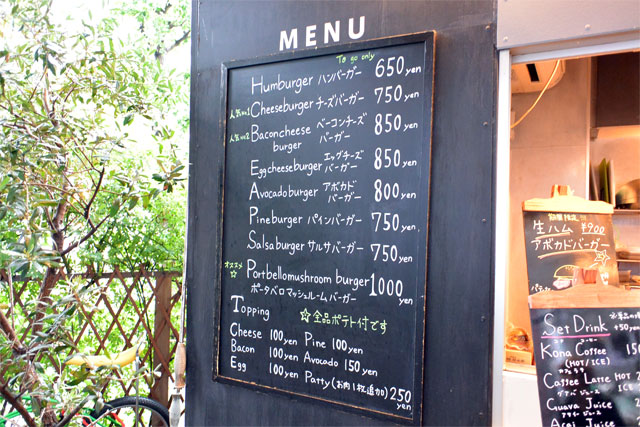 MENU
To go only
Humburger ハンバーガー 650 yen
人気no1 Cheeseburger チーズバーガー 750 yen
人気no2 Baconcheese ベーコンチーズ 850 yen
burger バーガー
Eggcheeseburger エッグチーズ 850 yen
バーガー
Avocadoburger アボカド 800 yen
バーガー
Pineburger パインバーガー 750 yen
Salsaburger サルサバーガー 750 yen
オススメ ☆ Portbellomushroom burger 1000 yen
ポータベロマッシュルームバーガー
Topping ☆全品ポテト付です
Cheese 100yen Pine 100yen
Bacon 100yen Avocado 150yen
Egg 100yen Patty(お肉1枚追加) 250 yen
生ハム ¥900
アボカドバーガー
Set Drink
Kona Coffee
(HOT/ICE)
Caffee Latte
HOT/ICE
Guava Juice
Acai Juice